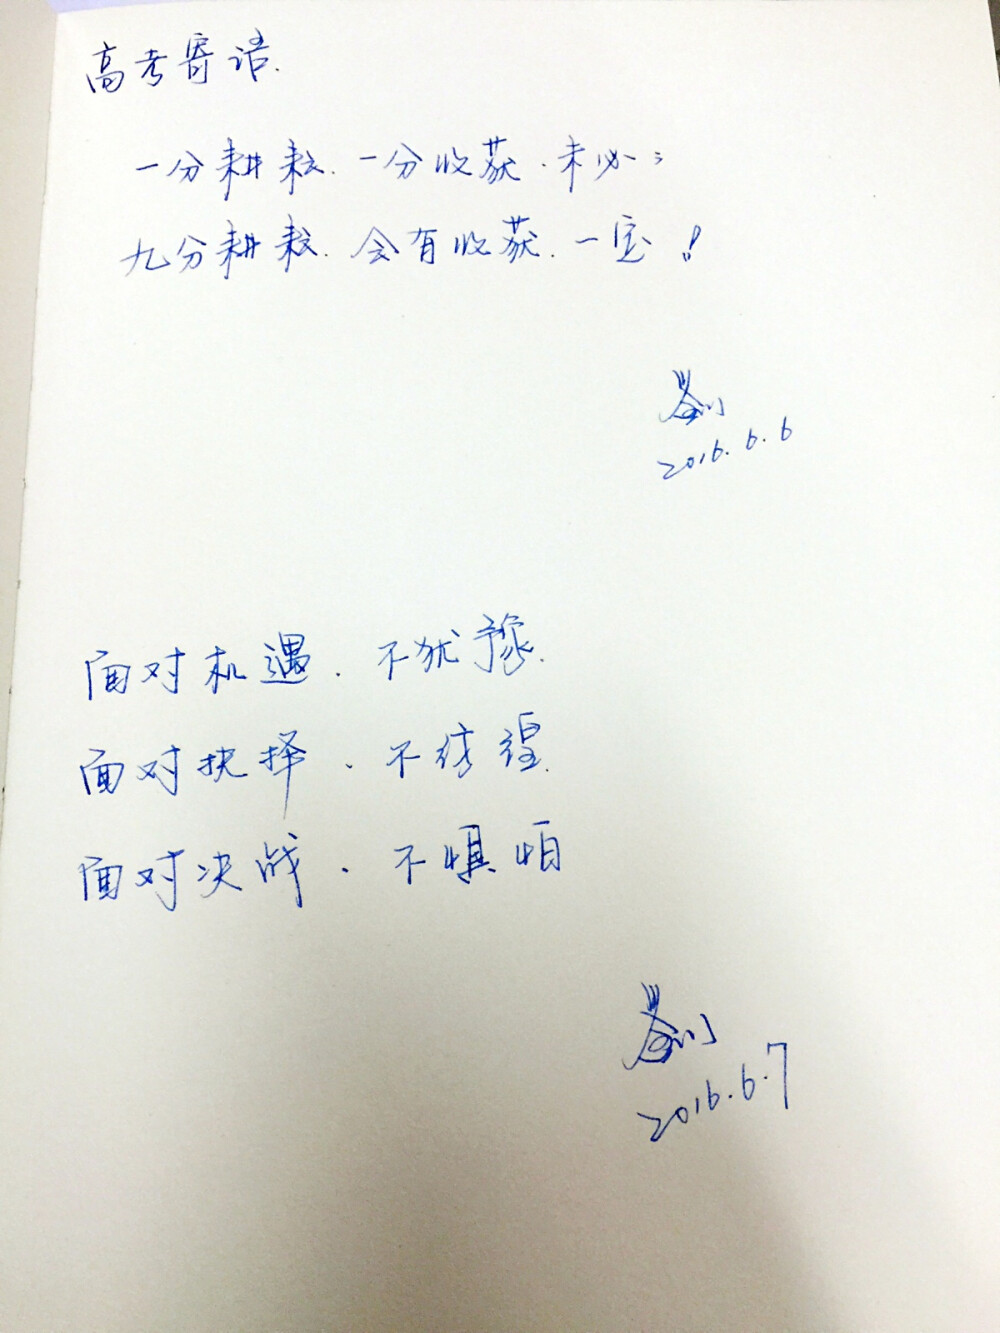 高考寄语.
一分耕耘.一分收获.未必;
九分耕耘.会有收获.一定!
2016.6.6
面对机遇.不犹豫.
面对抉择.不彷徨.
面对决战.不惧怕
2016.6.7